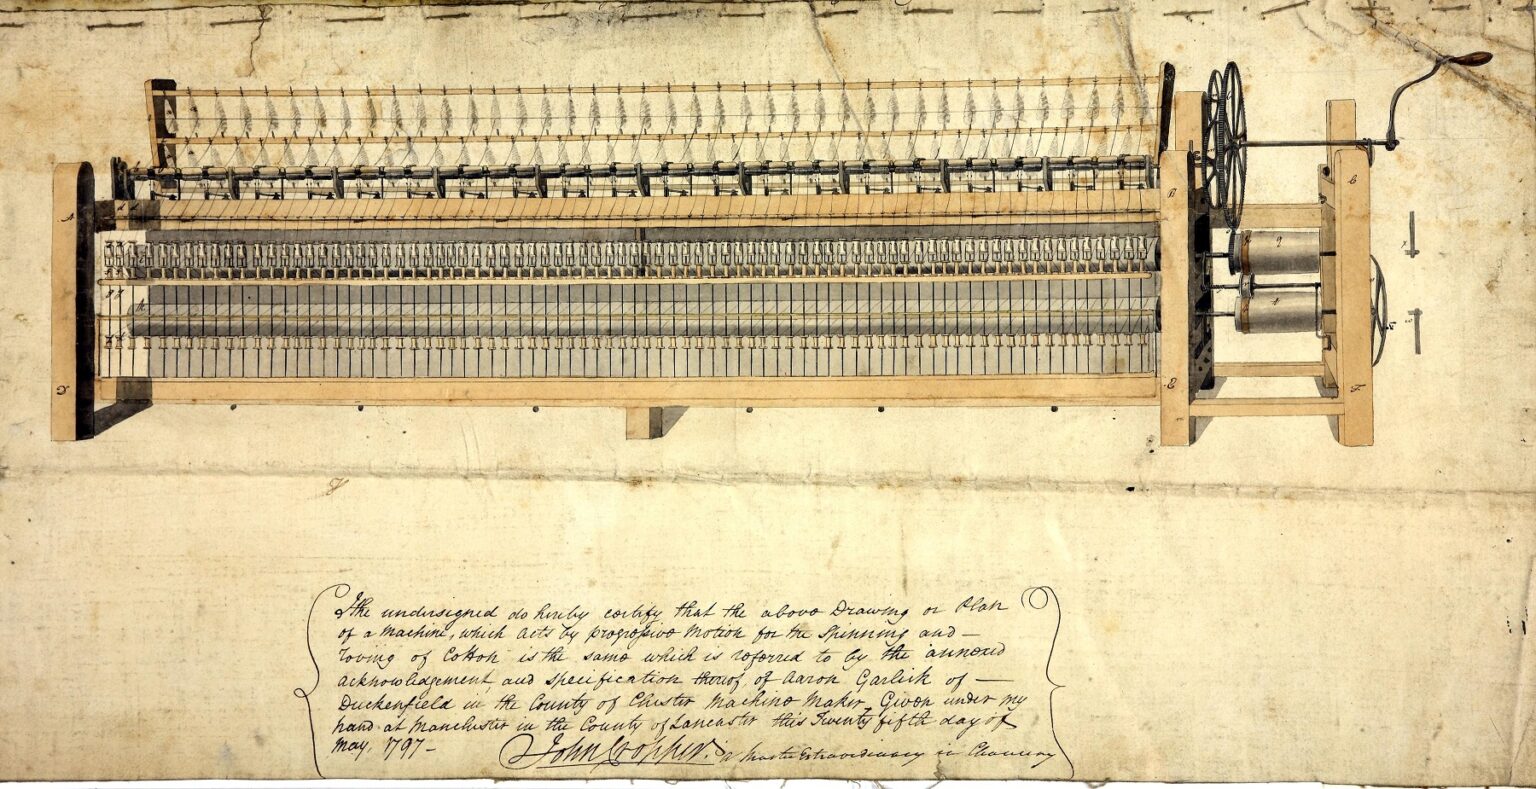 A
B
C
D
E
F
I the undersigned do hereby certify that the above Drawing or Plan
of a Machine, which acts by progressive Motion for the Spinning and —
roving of Cotton is the same which is referred to by the annexed
acknowledgement and specification thereof of Aaron Garlick of —
Duckenfield in the County of Chester Machine Maker Given under my
hand at Manchester in the County of Lancaster this Twenty fifth day of
May, 1797 —
John a Master Extraordinary in Chancery